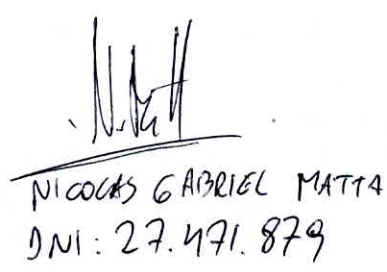 N. Matt
NICOLAS GABRIEL MATTA
DNI: 27.471.879